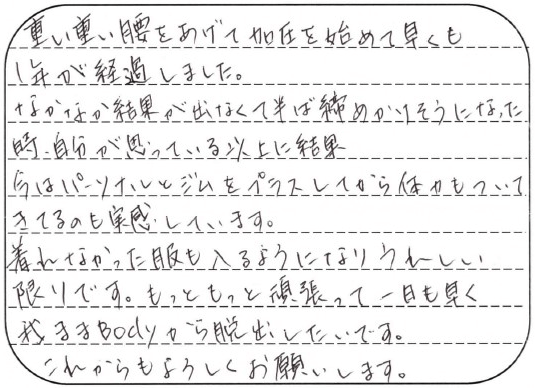 重い重い腰をあげて加圧を始めて早くも
1年が経過しました。
なかなか結果が出なくて半ば締めかけそうになった
時、自分が思っている以上に結果
今はパーソナルとジムをプラスしてから体力もついて
きてるのも実感しています。
着れなかった服も入るようになりうれしい
限りです。もっともっと頑張って一日も早く
我ままBodyから脱出したいです。
これからもよろしくお願いします。